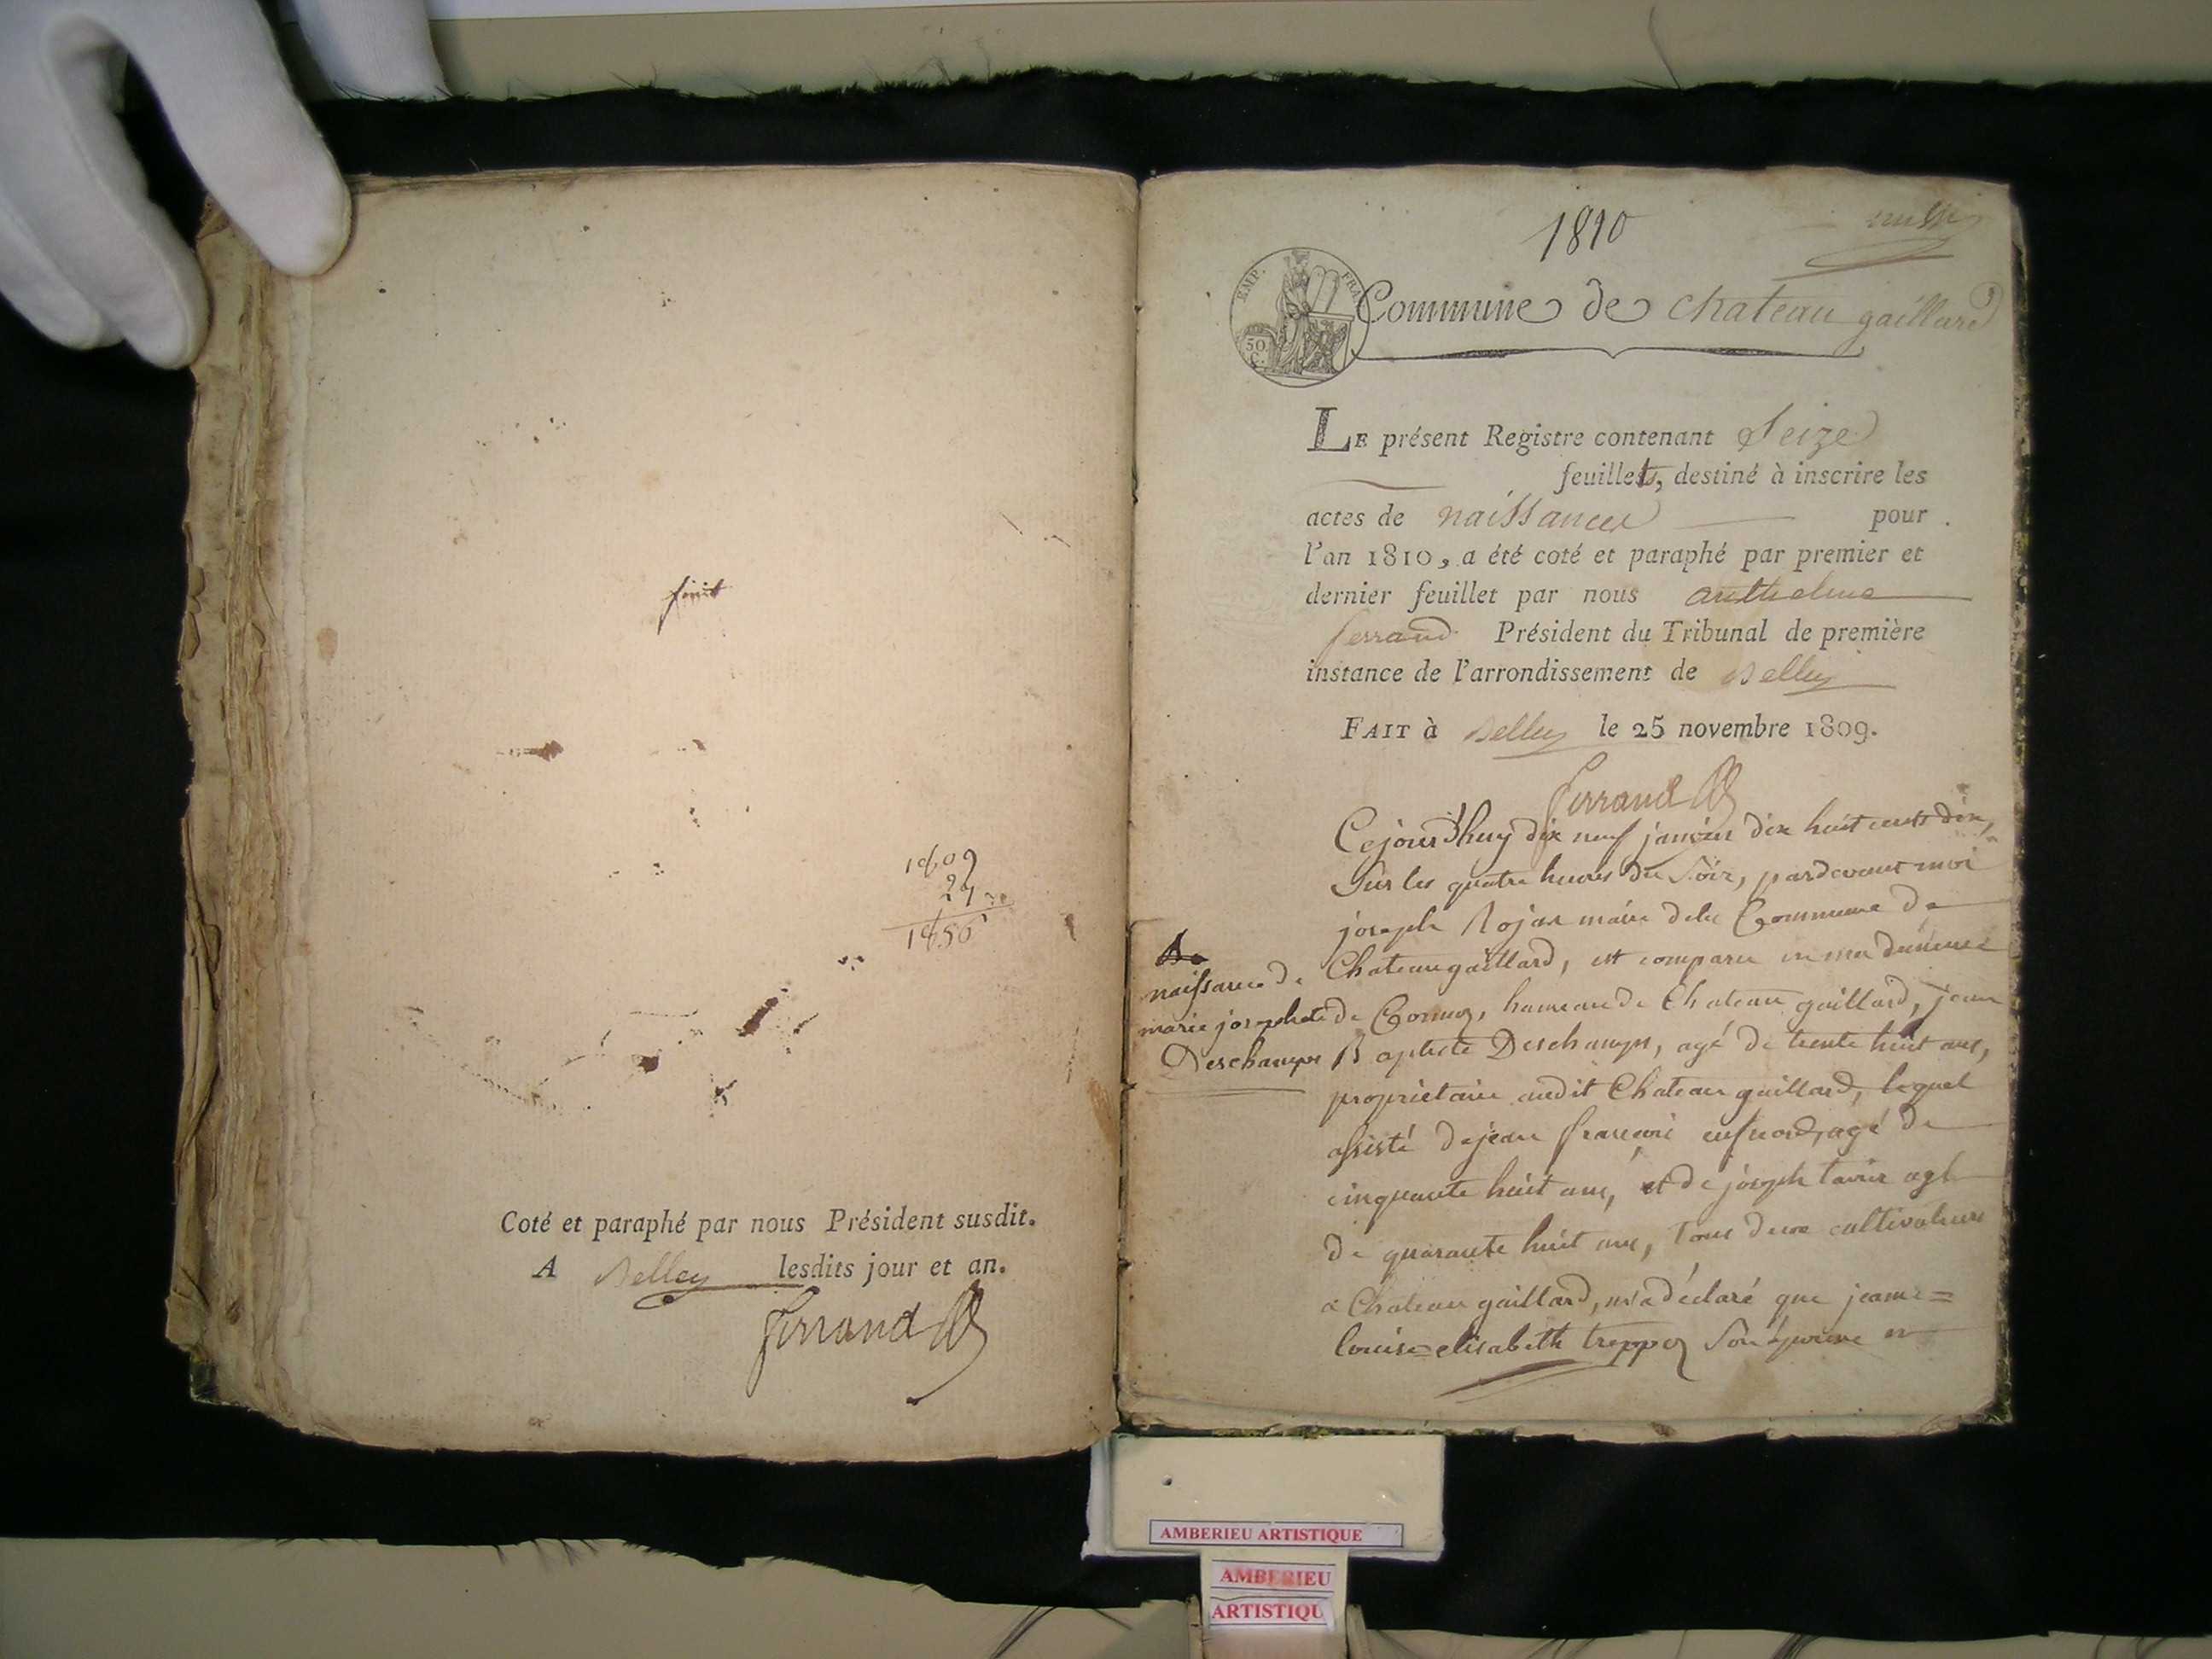 finit
1809
1850
Coté et paraphé par nous Président susdit.
A Belley lesdits jour et an.
ferrand
1810
EMP. FRA.
50
C.
Commune de chateau gaillard
LE présent Registre contenant Seize
feuillets, destiné à inscrire les
actes de naissances pour
l'an 1810, a été coté et paraphé par premier et
dernier feuillet par nous anthelme
ferrand Président du Tribunal de première
instance de l'arrondissement de Belley
FAIT à Belley le 25 novembre 1809.
ferrand
Cejourd'huy dix neuf janvier dix huit cents dix,
Sur les quatre heures du Soir, pardevant moi
joseph Rojat maire dela Commune de
Chateaugaillard, est comparu en ma demeure
de Cormoz, hameau de Chateau gaillard, jean
Baptiste Deschamps, agé de trente huit ans,
proprietaire audit Chateau gaillard, lequel
assisté de jean françois agé de
cinquante huit ans, et de joseph tavier agé
de quarante huit ans, tous deux cultivateurs
a Chateau gaillard, m'a déclaré que jeanne=
louise=elisabeth treppoz Son épouse en
naissance de
marie josephete
Deschamps
AMBERIEU ARTISTIQUE
AMBERIEU
ARTISTIQU